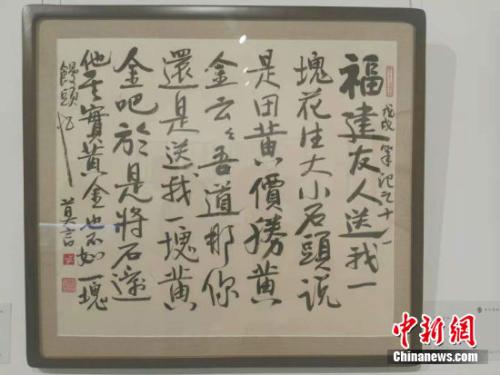 福建友人送我一
戊戌 筆記之十一
塊花生大小石頭說
是田黄價勝黄
金云々吾道那你
還是送我一塊黄
金吧於是將石
他其實黄金也不如一塊
饅頭
莫言
中新网
Chinanews.com